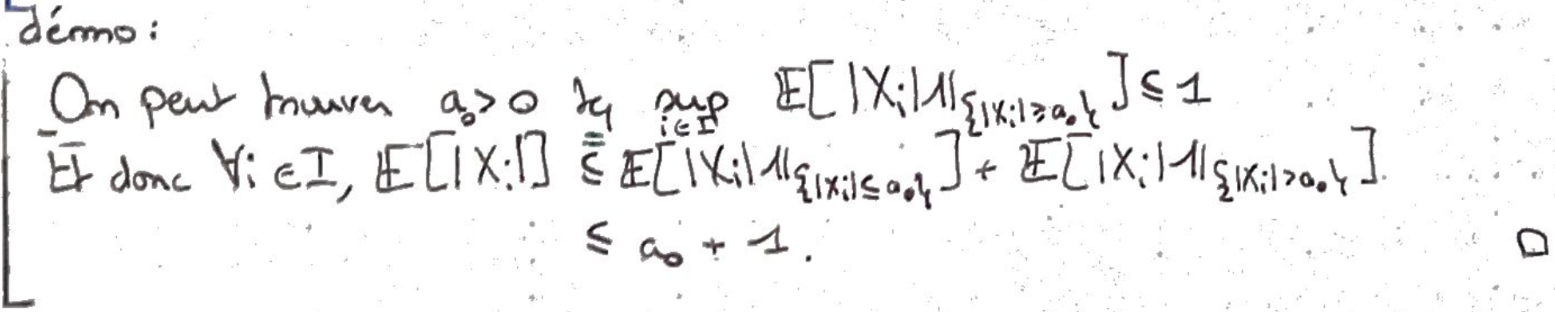 démo :
On peut trouver a₀>0 tq sup_{i∈I} 𝔼[|Xᵢ|𝟙_{{|Xᵢ|≥a₀}}] ≤ 1
Et donc ∀i ∈ I, 𝔼[|Xᵢ|] ≤ 𝔼[|Xᵢ|𝟙_{{|Xᵢ|≤a₀}}] + 𝔼[|Xᵢ|𝟙_{{|Xᵢ|>a₀}}].
≤ a₀ + 1. □